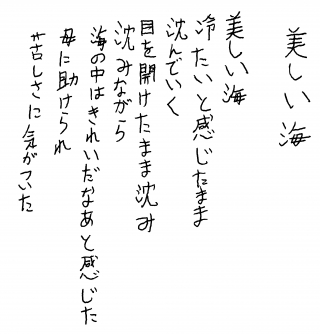 美しい海
美しい海
冷たいと感じたまま
沈んでいく
目を開けたまま沈み
沈みながら
海の中はきれいだなあと感じた
母に助けられ
苦しさに気がついた